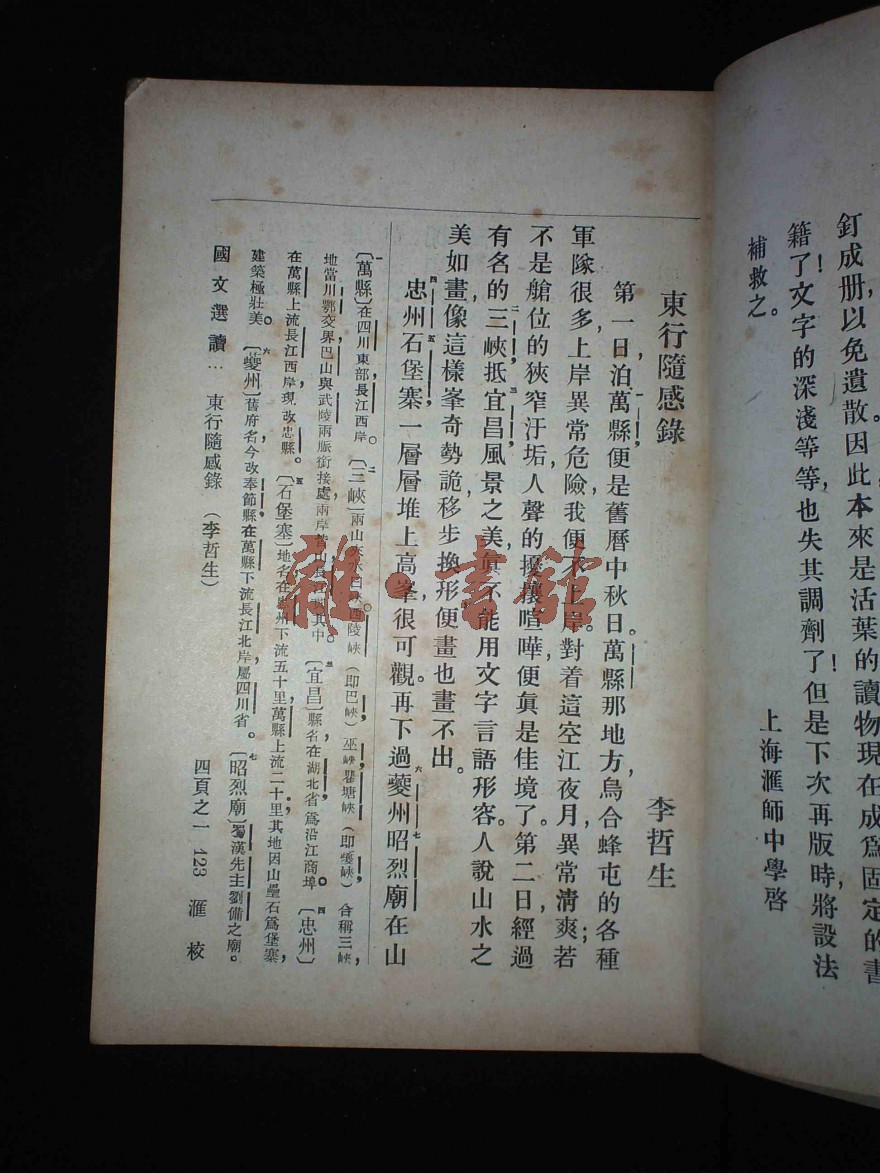 釘成册，以免遺散。因此，本來是活葉的讀物，現在成爲固定的書
籍了！文字的深淺等等，也失其調劑了！但是下次再版時，將設法
補救之。
上海滙師中學啓
東行隨感錄
李哲生
第一日泊萬縣，便是舊曆中秋日。萬縣那地方，烏合蜂屯的各種
軍隊很多，上岸異常危險，我便不上岸。對着這空江夜月，異常清爽；若
不是艙位的狹窄汙垢，人聲的擾攘喧嘩，便眞是佳境了。第二日，經過
有名的三峽，抵宜昌，風景之美，眞不能用文字言語形容。人說山水之
美如畫，像這樣峯奇勢詭，移步換形，便畫也畫不出。
忠州石堡寨，一層層堆上高峯，很可觀。再下過夔州，昭烈廟在山
一〔萬縣〕在四川東部長江西岸。 二〔三峽〕兩山夾水曰峽，西陵峽（卽巴峽），巫峽，瞿塘峽（卽夔峽），合稱三峽，
地當川鄂交界，巴山與武陵兩脈銜接處，兩岸皆山，長江，其中。 三〔宜昌〕縣名，在湖北省，爲沿江商埠。 四〔忠州〕
在萬縣上流，長江西岸，現改忠縣。 五〔石堡寨〕地名，在忠州下流五十里，萬縣上流二十里，其地因山壘石爲堡寨，
建築極壯美。 六〔夔州〕舊府名，今改奉節縣，在萬縣下流，長江北岸，屬四川省。 七〔昭烈廟〕蜀漢先主劉備之廟。
國文選讀：東行隨感錄（李哲生） 四頁之一 123 滙校
雜·書館